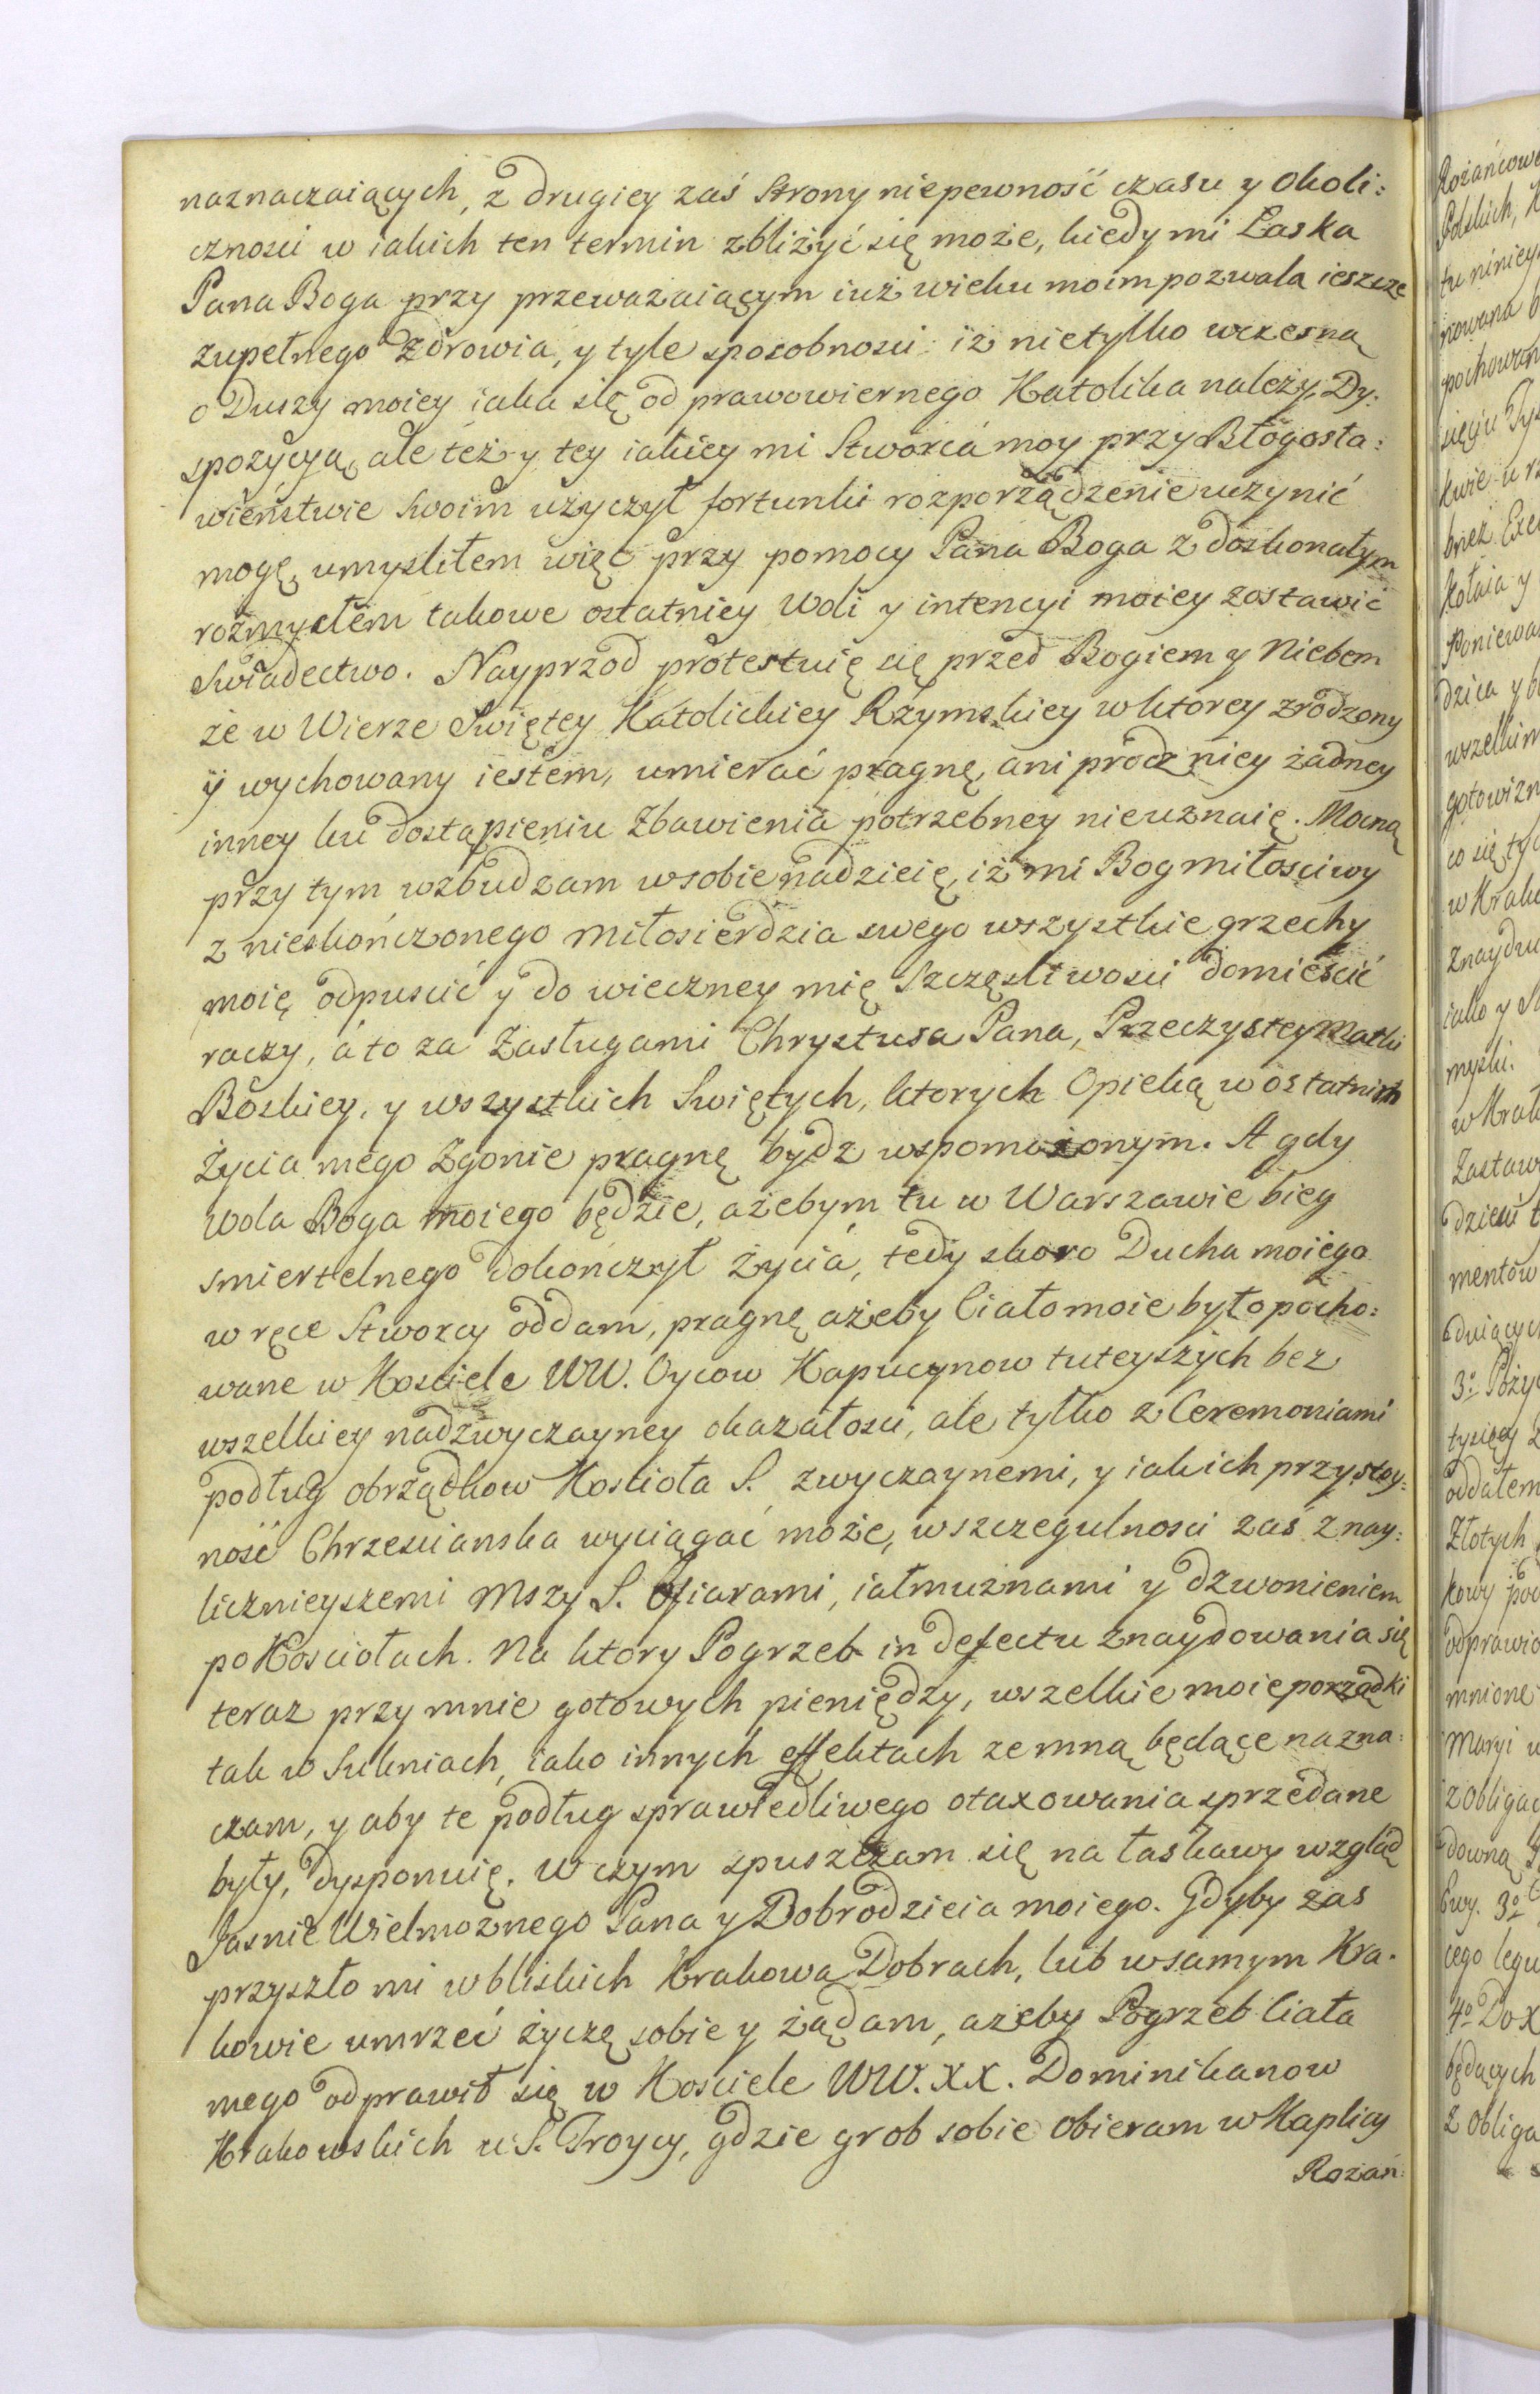 naznaczaiących, z drugiey zaś Strony niepewność czasu y Okoli:
cznosci w iakich ten termin zbliżyć się może, kiedy mi Łaska
Pana Boga przy przeważaiącym iuż wieku moim pozwala ieszcze
zupełnego Zdrowia, y tyle sposobnosci iż nietylko wczesną
o Duszy moiey iaka się od prawowiernego Katolika należy Dy:
spozycyą, ale też y tey iakiey mi Stworca moy przy Błogosła:
wieństwie Swoim użyczył fortunki rozporządzenie uczynić
mogę, umysliłem więc przy pomocy Pana Boga z doskonałym
rozmysłem takowe ostatniey Woli y intencyi moiey zostawić
Swiadectwo. Nayprzod protestuię się przed Bogiem y Niebem
że w Wierze Swiętey Katolickiey Rzymskiey w ktorey zrodzony
ÿ wychowany iestem, umierać pragnę, ani procz niey żadney
inney ku dostąpieniu Zbawienia potrzebney nieuznaię. Mocną
przy tym wzbudzam w sobie nadzieię, iż mi Bog miłosciwy
z nieskończonego miłosierdzia swego wszystkie grzechy
moię odpuscić y do wieczney mię Szczęsliwosci domieścić
raczy, á to za Zasługami Chrystusa Pana, Przeczystey Matki
Boskiey, y wszystkich Swiętych, ktorych Opieką w ostatnim
Życia mego Zgonie pragnę bydz wspomożonym. A gdy
wola Boga moiego będzie, ażebym tu w Warszawie bieg
smiertelnego dokończył Życia, tedy skoro Ducha moiego
w ręce Stworcy oddam, pragnę ażeby Ciało moie było pocho:
wane w Kosciele WW. Oycow Kapucynow tuteyszych bez
wszelkiey nadzwyczayney okazałosci, ale tylko z Ceremoniami
podług obrządkow Kosciola S. zwyczaynemi, y iakich przystoy:
ność Chrzescianska wyciągać może, w szczegulnosci zaś z nay:
licznieyszemi Mszy S. Ofiarami, iałmużnami y dzwonieniem
po Kosciołach. Na ktory Pogrzeb in defectu znaydowania się
teraz przy mnie gotowych pieniędzy, wszelkie moie porządki
tak w Sukniach, iako innych effektach ze mną będące nazna:
czam, y aby te podług sprawiedliwego otaxowania sprzedane
były, dysponuię. W czym spuszczam się na łaskawy wzgląd
Jasnie Wielmożnego Pana y Dobrodzieia moiego. Gdyby zaś
przyszło mi w bliskich Krakowa Dobrach, lub w samym Kra:
kowie umrzeć życzę sobie y żądam, ażeby Pogrzeb Ciała
mego odprawił się w Kosciele WW. XX. Dominikanow
Krakowskich u S. Troycy, gdzie grob sobie obieram w Kaplicy
Rozań: